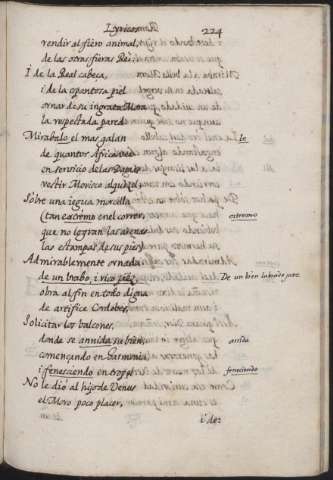 Lyricos
224
rendir al fiero animal,
de las otras fieras Rei.
I de la Real cabeça,
i de la espantosa piel
ornar de su ingrata Mora
la respetada pared.
Mirabalo el mas galan
de quantos Africa vio
en servicio de las Damas
vestir Morisco alquizel.
Sobre una iegua morcilla
(tan extremo en el correr,
que no logran las arenas
las estampas de sus pies)
Admirablemente ornada
de un brabo, i rico jaez,
obra al fin en todo digna
de artifice Cordobes,
Solicitar los balcones,
donde se annida su bien,
començando en harmonia,
i feneciendo en tropel.
No le dió al hijo de Venus
el Moro poco placer,
i de
lo
estremo
De un bien labrado jaez
anida
feneciendo